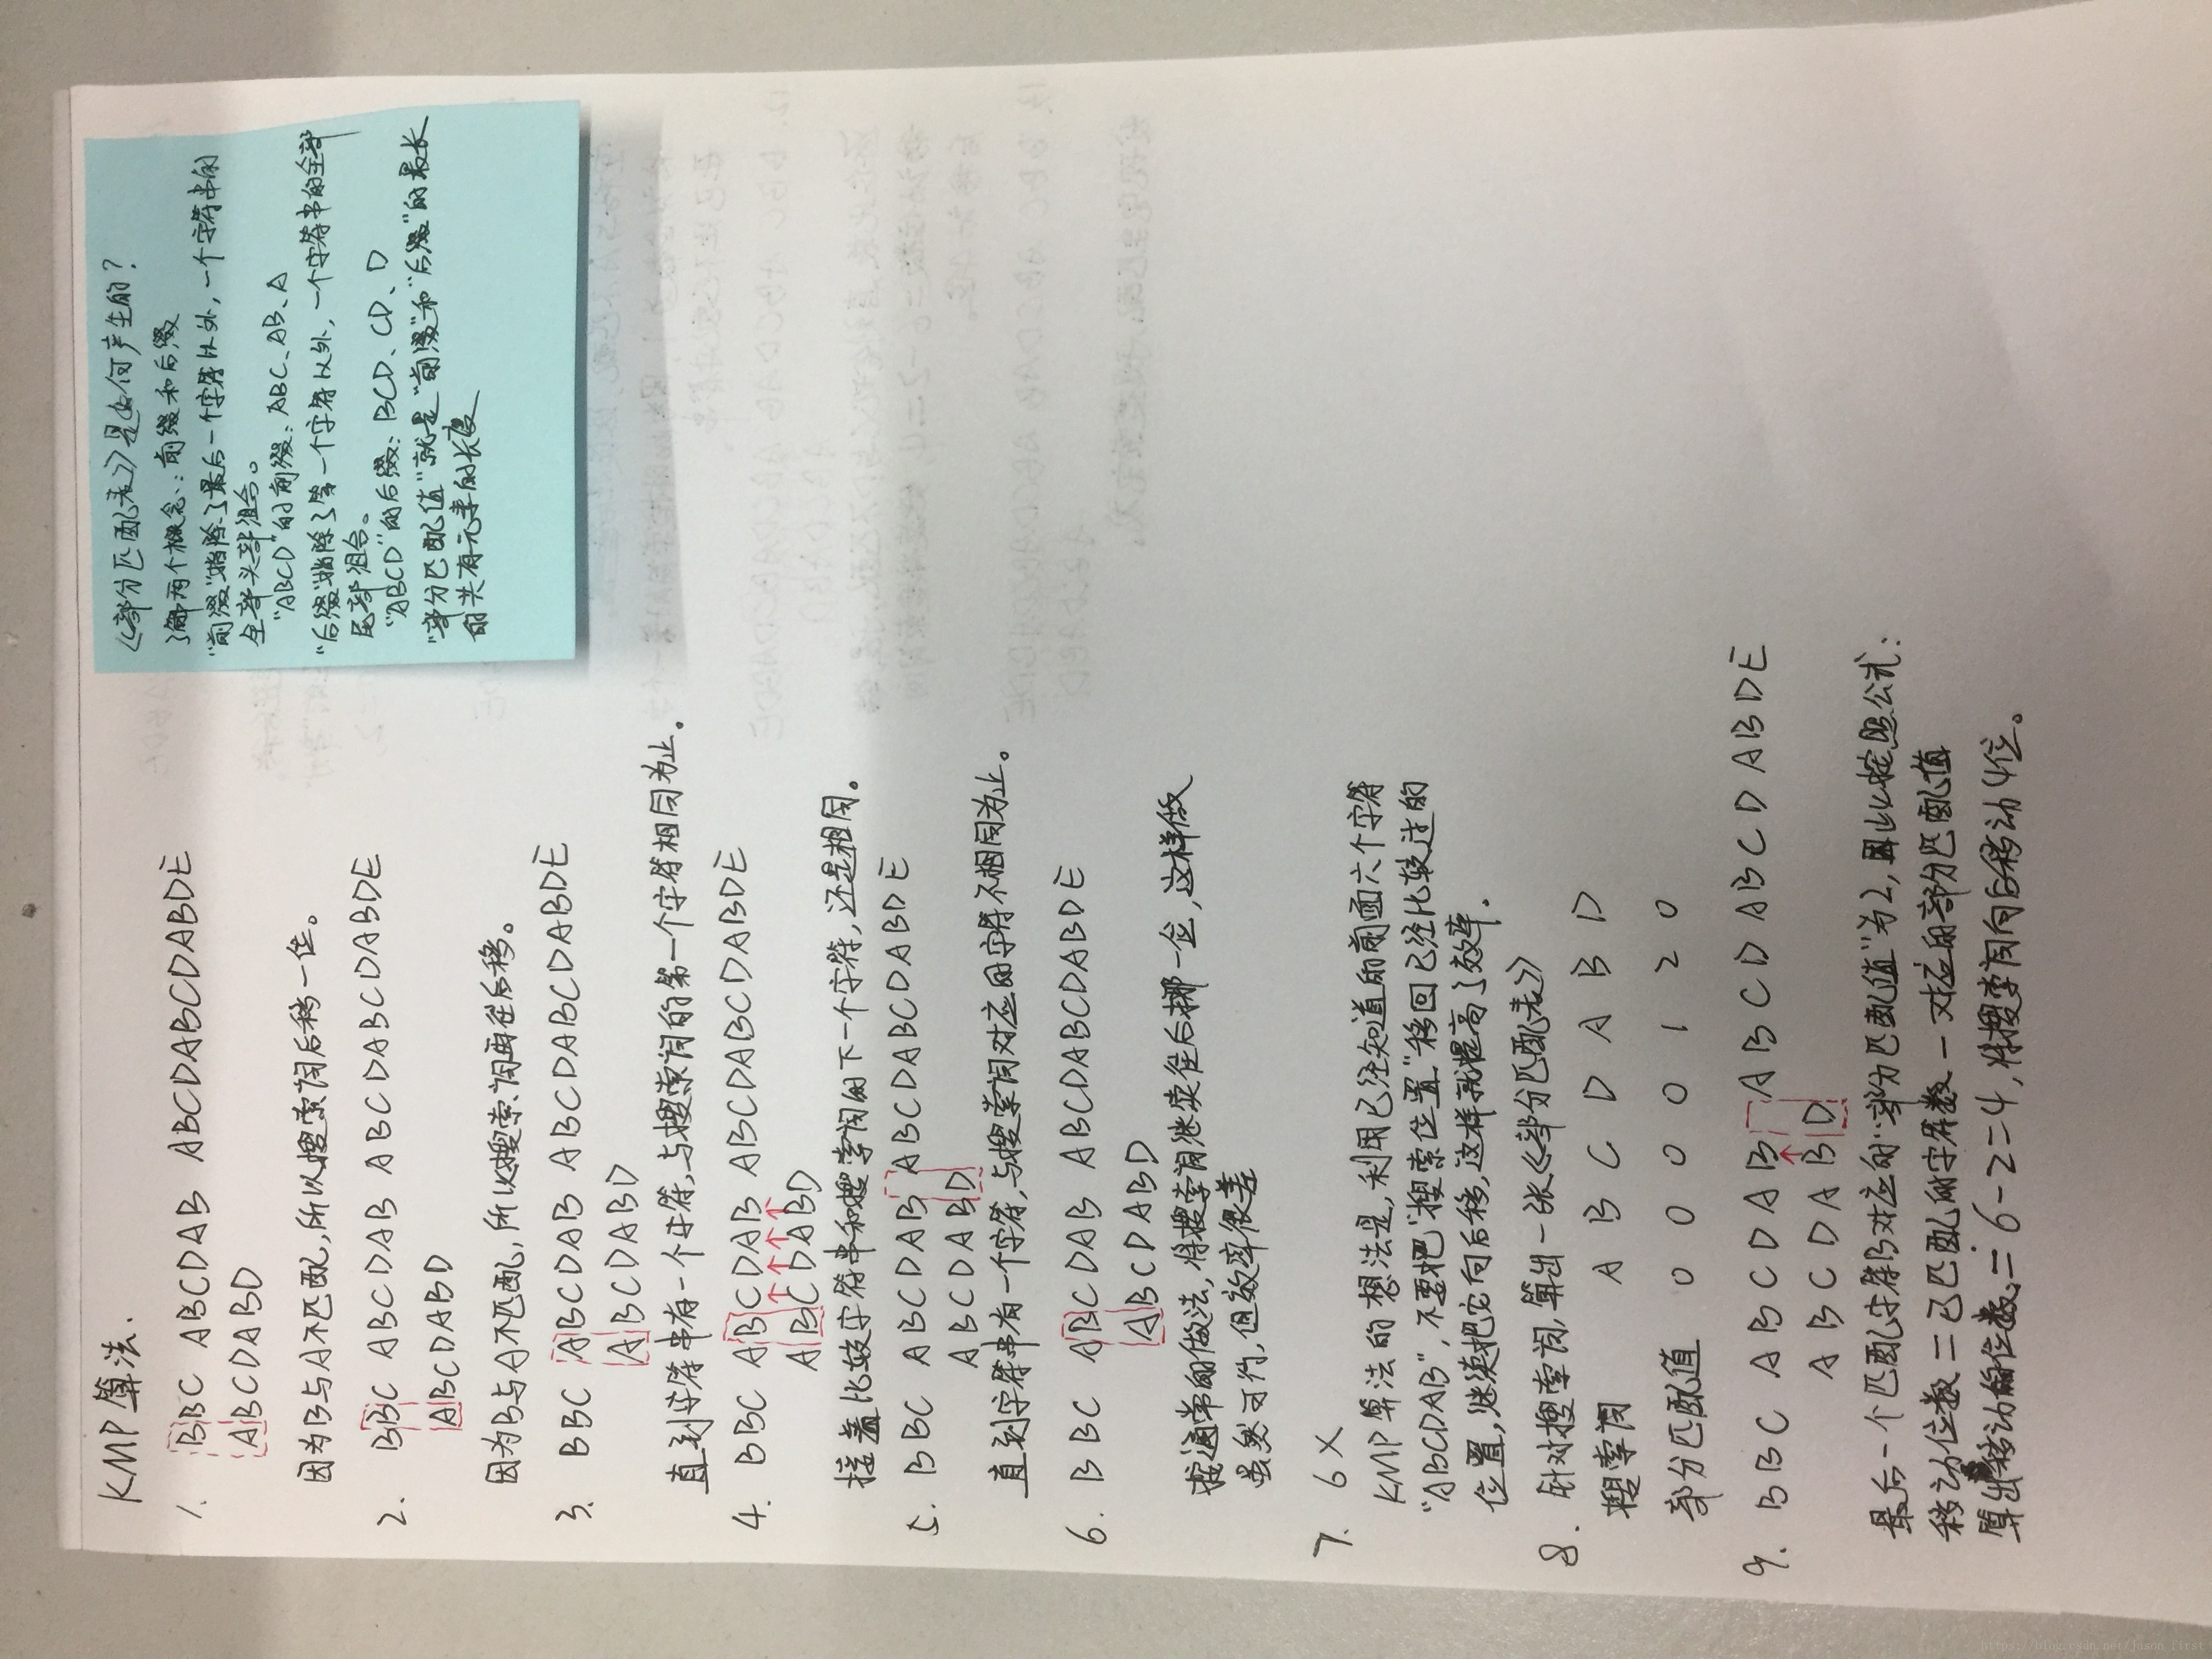 KMP算法.
1. BBC ABCDAB ABCDABCDABDE
ABCDABD
因为B与A不匹配,所以搜索词后移一位。
2. BBC ABCDAB ABCDABCDABDE
ABCDABD
因为B与A不匹配,所以搜索词再往后移。
3. BBC ABCDAB ABCDABCDABDE
ABCDABD
直到字符串有一个字符,与搜索词的第一个字符相同为止。
4. BBC ABCDAB ABCDABCDABDE
ABCDABD
接着比较字符串和搜索词的下一个字符,还是相同。
5. BBC ABCDAB ABCDABCDABDE
ABCDABD
直到字符串有一个字符,与搜索词对应的字符不相同为止。
6. BBC ABCDAB ABCDABCDABDE
ABCDABD
按通常的做法,将搜索词继续往后挪一位,这样做
虽然可行,但效率很差
7. 6X
KMP算法的想法是,利用已经知道的前面六个字符
“ABCDAB”,不要把“搜索位置”移回已经比较过的
位置,继续把它向后移,这样就提高了效率.
8. 针对搜索词,算出一张《部分匹配表》
搜索词 A B C D A B D
部分匹配值 0 0 0 0 1 2 0
9. BBC ABCDAB ABCDABCDABDE
ABCDABD
最后一个匹配字符B对应的“部分匹配值”为2,因此按照公式:
移动位数=已匹配的字符数-对应的部分匹配值
算出移动的位数:=6-2=4,将搜索词向后移动4位。
《部分匹配表》是如何产生的?
了解两个概念:前缀和后缀
“前缀”指除了最后一个字符以外,一个字符串的
全部头部组合。
“ABCD”的前缀:ABC、AB、A
“后缀”指除了第一个字符以外,一个字符串的全部
尾部组合。
“ABCD”的后缀:BCD、CD、D
“部分匹配值”就是“前缀”和“后缀”的最长
的共有元素的长度
https://blog.csdn.net/jason_first